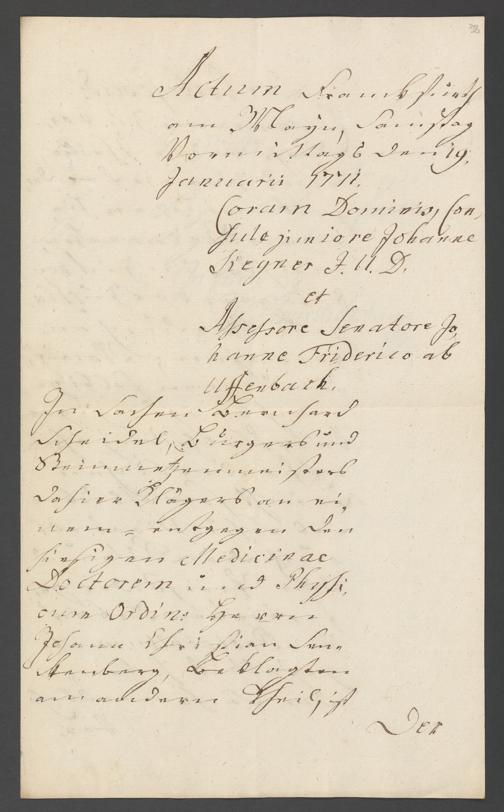 Actum Franckfurth
am Mayn, Samstag
Vormittags den 19.
Januarii 1771.
Coram Dominis, Con,
sule juniore Johanne
Siegner J. U. D.
et
Assessore Senatore Jo,
hanne Friderico ab
Uffenbach.
In Sachen Bernhard
Scheidel, Bürgers und
Steinmetzenmeisters
dahier Klägers an ei,
nem - entgegen den
hiesigen Medicinae
Doctorem und Physi,
cum Ordin: Herrn
Johann Christian Sen,
ckenberg, Beklagten
am andern Theil, ist
Der